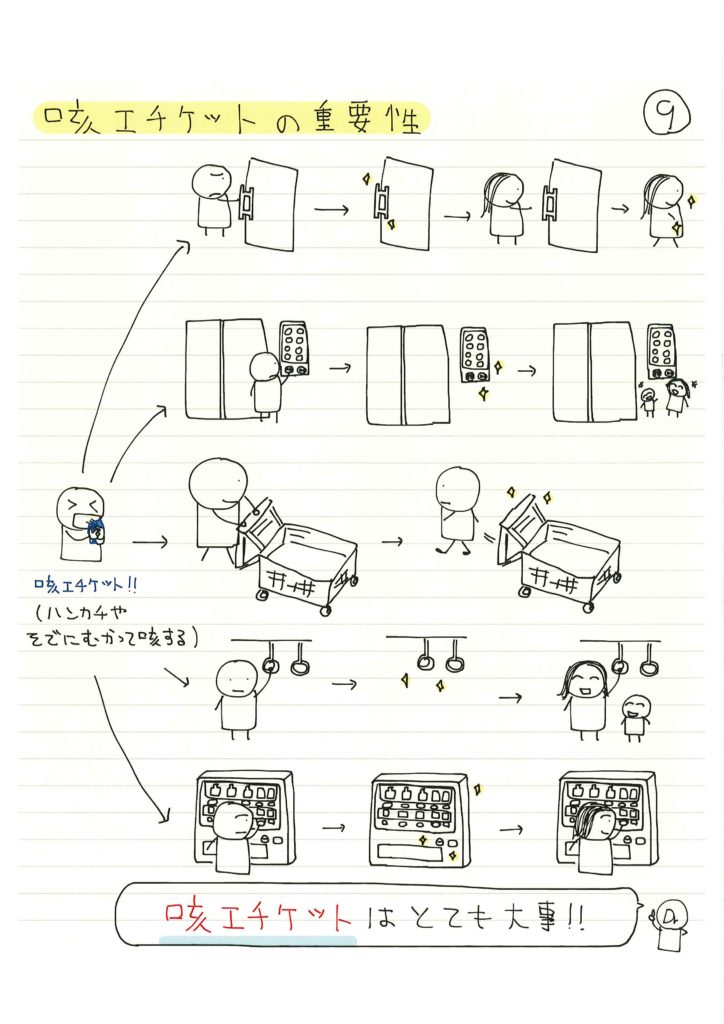 咳エチケットの重要性
9
咳エチケット!!
(ハンカチや
そでにむかって咳する)
咳エチケットはとても大事!!
Dr